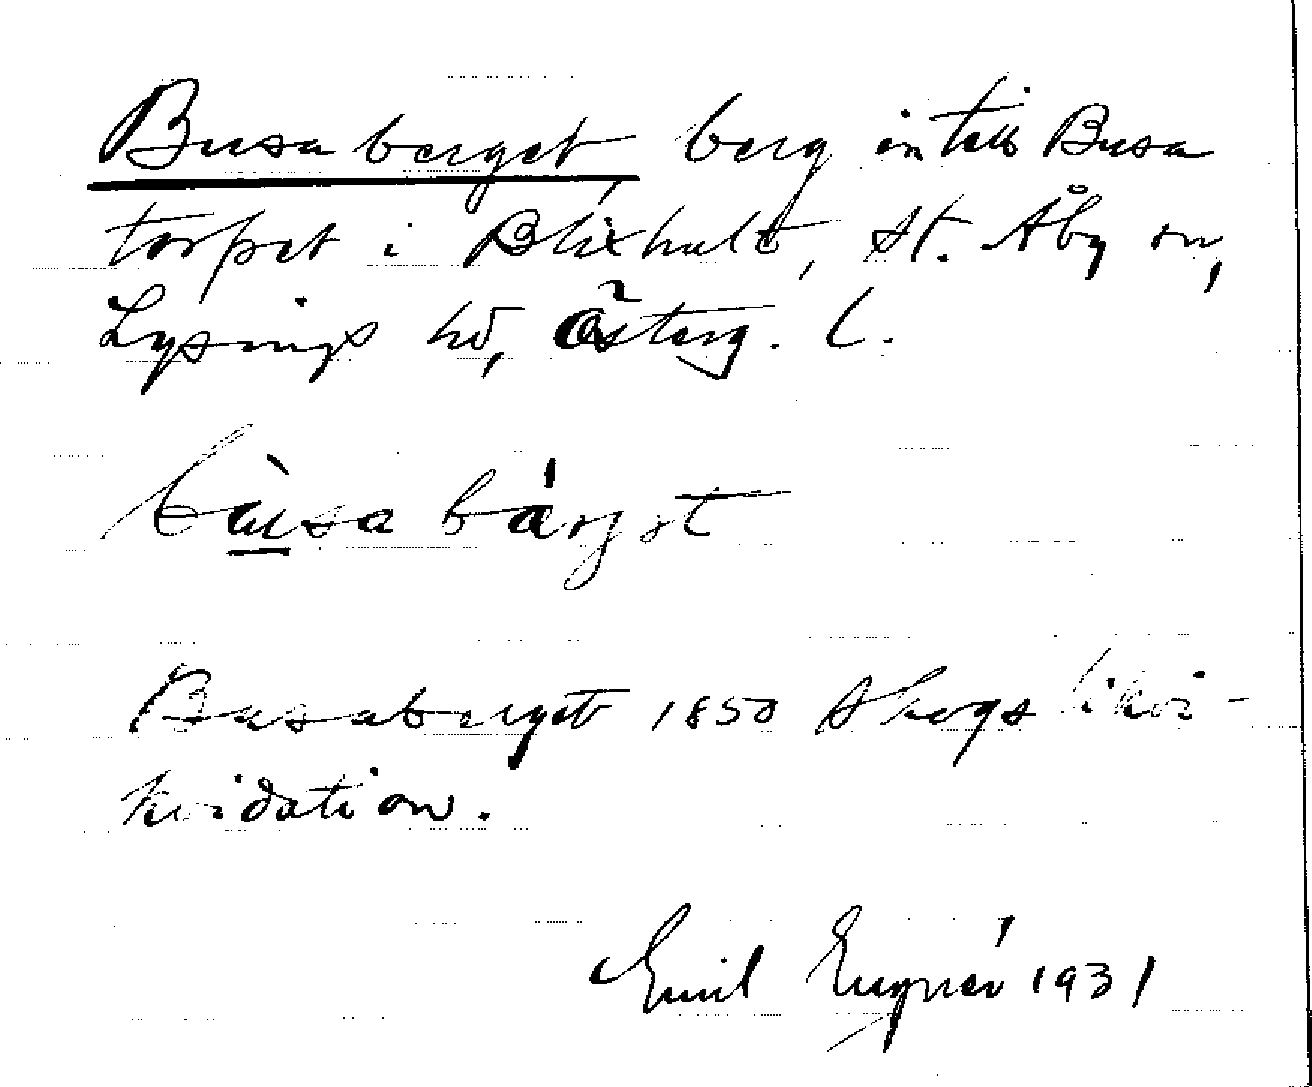 Busaberget, berg intill Busa
torpet i Blixhult, St. Åby sn,
Lysings hd, Österg. l.
bùsa bárjət
Busaberget 1850 Skogslikvi-
kvidation.
Emil Engnér 1931